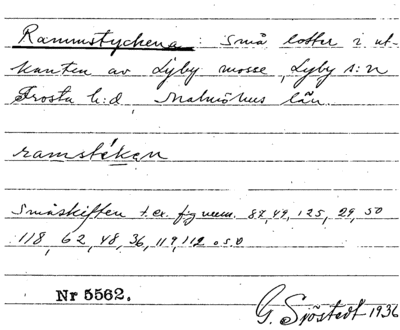 Rammstyckena: små lotter i ut-
kanten av Lyby mosse, Lyby s:n
Frosta h:d, Malmöhus län.
ramstékan
Småskiften t. ex. fig num. 87, 49, 125, 29, 50
118, 62, 48, 36, 119, 112 o.s.v
Nr 5562.
G. Sjöstedt 1936